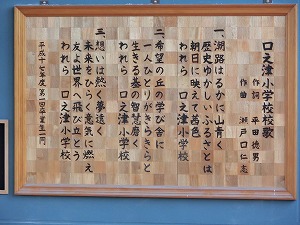 口之津小学校校歌
作詞 平田徳男
作曲 瀬戸口仁志
一、湖路はるかに山青く
歴史ゆかしいふるさとは
朝日に映えて茜色
われら 口之津小学校
二、希望の丘の学び舎に
一人ひとりがきらきらと
生きる基の智慧磨く
われら 口之津小学校
三、想いは熱く夢遠く
未来をひらく意気に燃え
友よ世界へ飛び立とう
われら 口之津小学校
平成十七年度 第一四卒業生一同